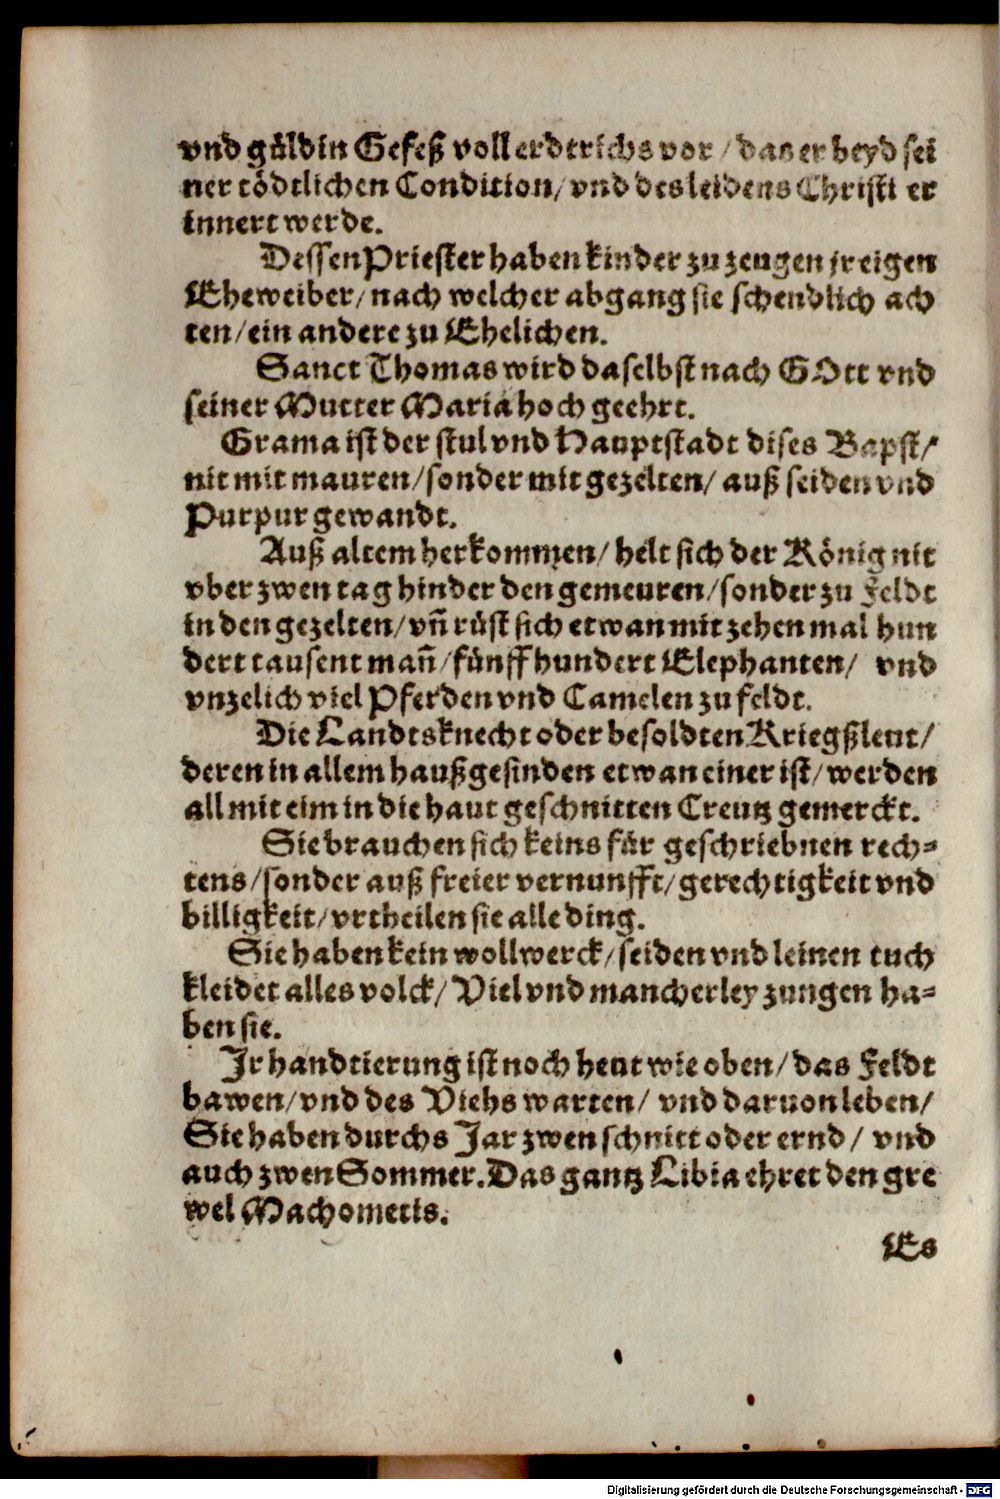 vnd güldin Gefeß voll erdtrichs vor / das er beyd sei
ner tödtlichen Condition / vnd des leidens Christi er
innert werde.
Dessen Priester haben kinder zu zeugen jr eigen
Eheweiber / nach welcher abgang sie schendlich ach
ten / ein andere zu Ehelichen.
Sanct Thomas wird daselbst nach GOtt vnd
seiner Mutter Maria hoch geehrt.
Grama ist der stul vnd Hauptstadt dises Bapst /
nit mit mauren / sonder mit gezelten / auß seiden vnd
Purpur gewandt.
Auß altem herkommen / helt sich der König nit
vber zwen tag hinder den gemeuren / sonder zu Feldt
in den gezelten / vñ rüst sich etwan mit zehen mal hun
dert tausent mañ / fünff hundert Elephanten / vnd
vnzelich viel Pferden vnd Camelen zu feldt.
Die Landtsknecht oder besoldten Kriegßleut /
deren in allem haußgesinden etwan einer ist / werden
all mit eim in die haut geschnitten Creutz gemerckt.
Sie brauchen sich keins für geschriebnen rech-
tens / sonder auß freier vernunfft / gerechtigkeit vnd
billigkeit / vrtheilen sie alle ding.
Sie haben kein wollwerck / seiden vnd leinen tuch
kleidet alles volck / Viel vnd mancherley zungen ha-
ben sie.
Jr handtierung ist noch heut wie oben / das Feldt
bawen / vnd des Viehs warten / vnd daruon leben /
Sie haben durchs Jar zwen schnitt oder ernd / vnd
auch zwen Sommer. Das gantz Libia ehret den gre
wel Machomets.
Es
Digitalisierung gefördert durch die Deutsche Forschungsgemeinschaft - DFG